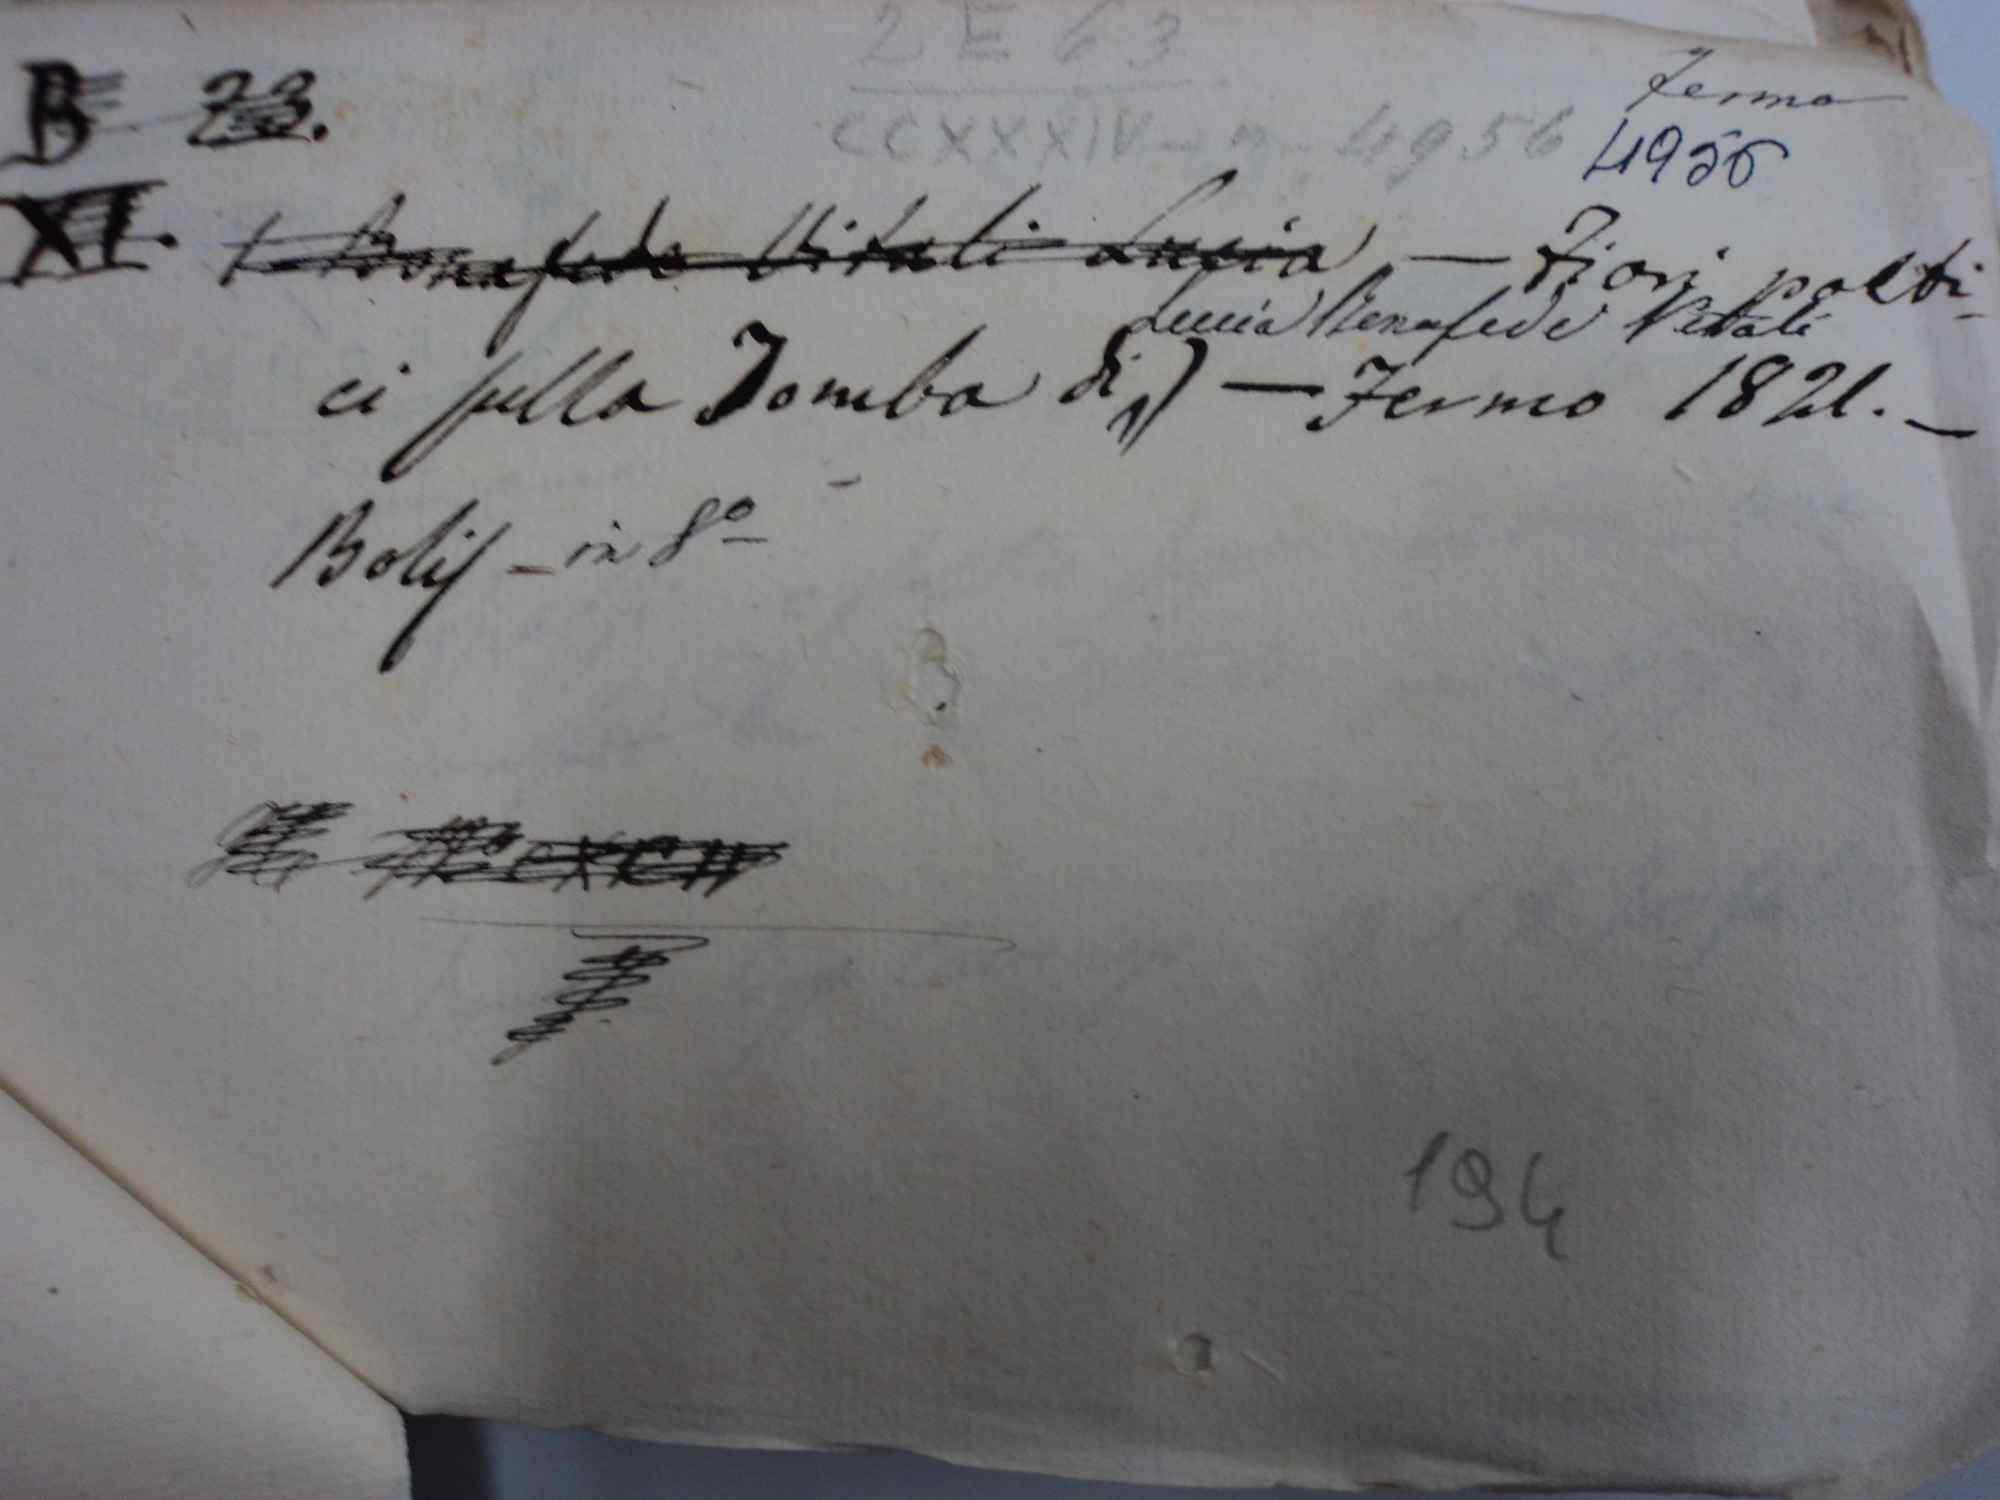 2 E 63
Fermo
B 23.
CCXXXIV - n - 4956
4956
XI. Bonafede Vitali Lucia — Fiori poeti-
Lucia Bonafede Vitali
ci sulla Tomba di — Fermo 1821. —
Bolis - in 8º
194